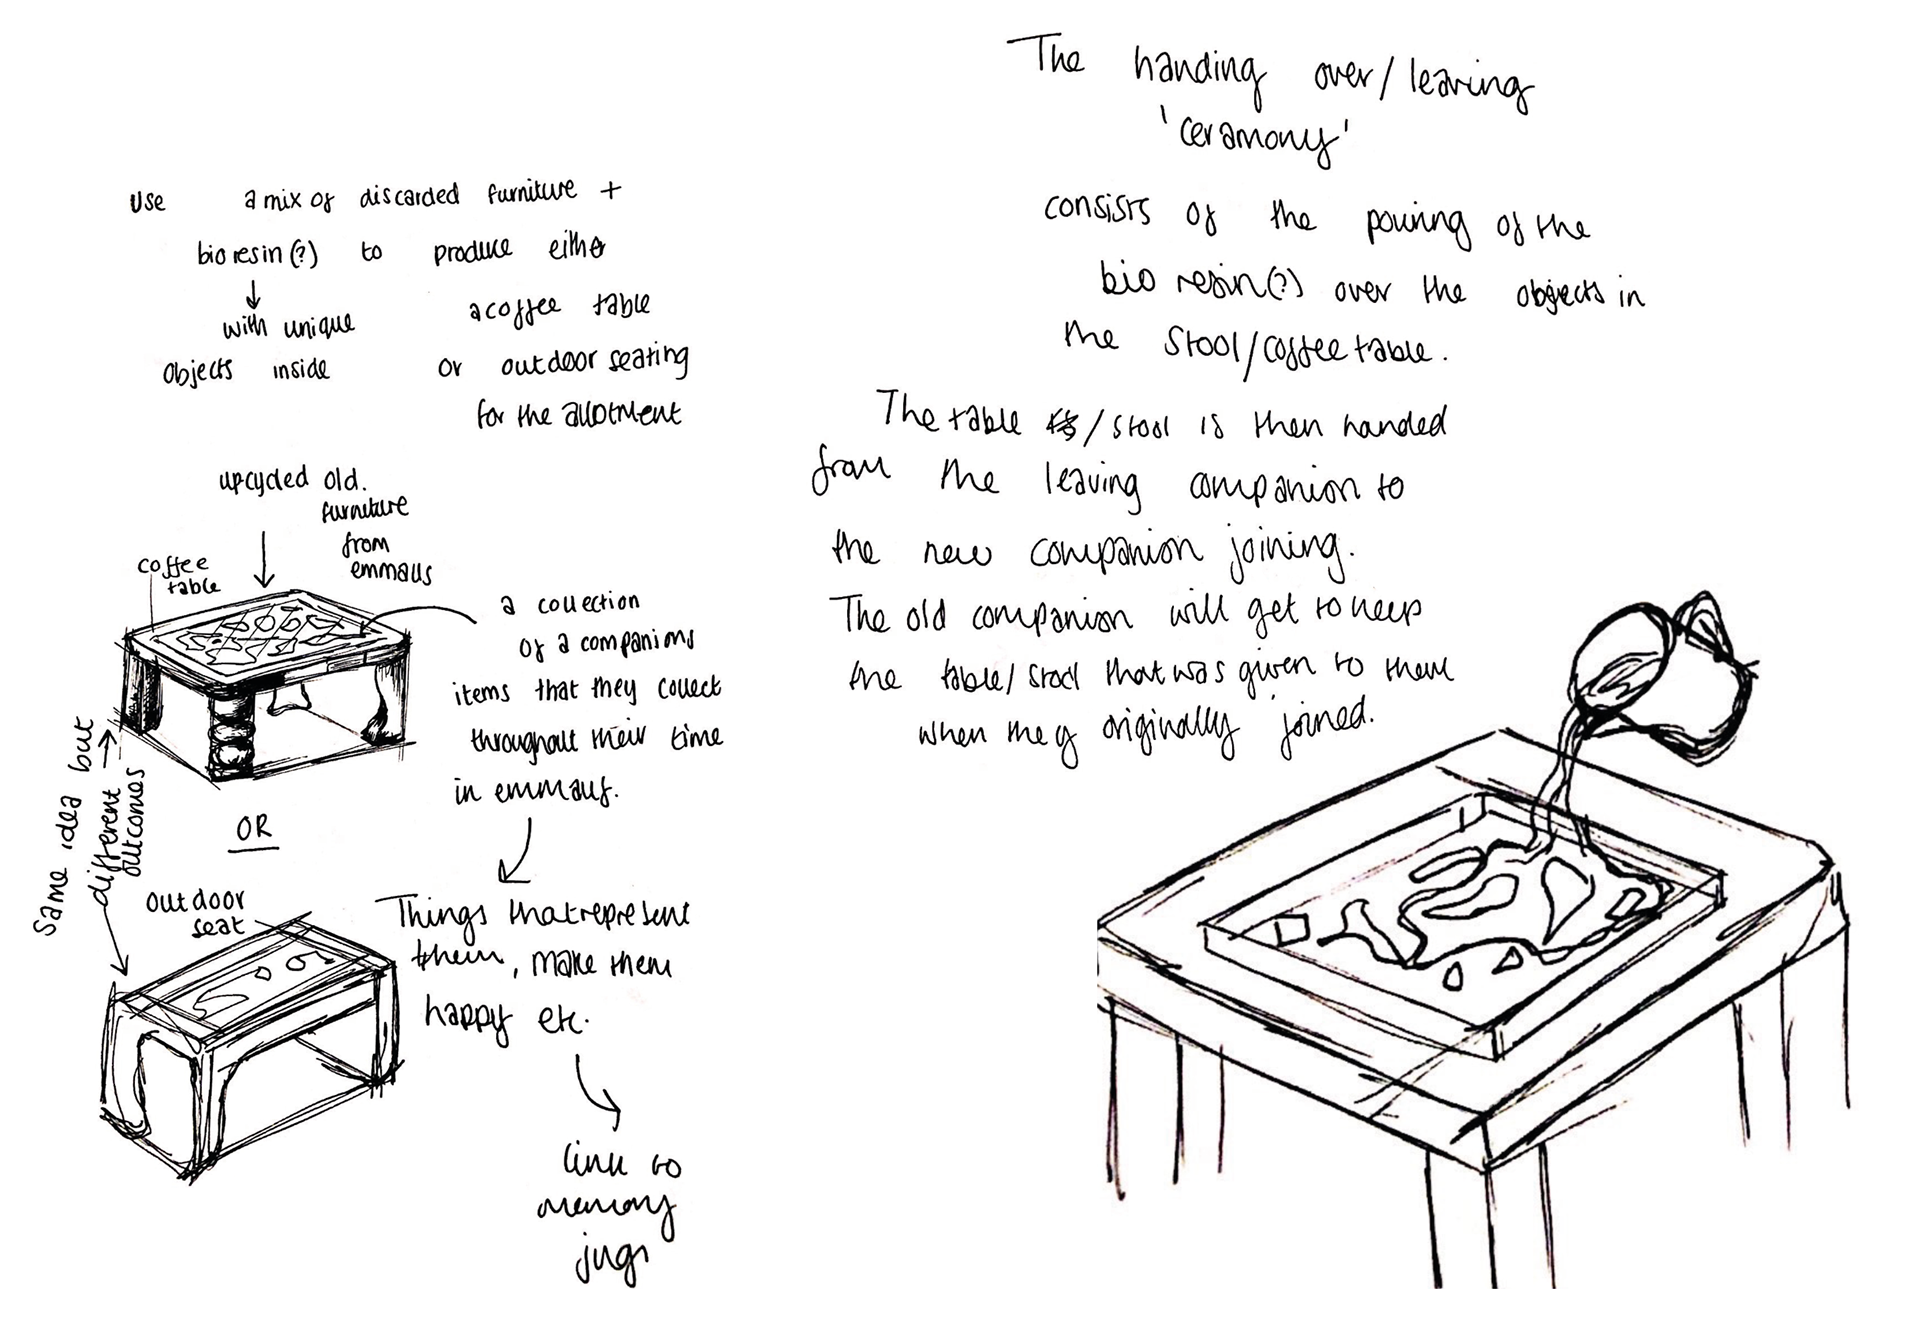 Use a mix of discarded furniture +
bio resin(?) to produce either
↓
with unique
objects inside
a coffee table
or outdoor seating
for the allotment
upcycled old.
furniture
from
emmaus
coffee
table
a collection
of a companions
items that they collect
throughout their time
in emmaus.
Same idea but
different
outcomes
OR
outdoor
seat
Things that represent
them, make them
happy etc.
link to
memory
jugs
The handing over/leaving
'ceramony'
consists of the pouring of the
bio resin(?) over the objects in
the stool/coffee table.
The table /stool is then handed
from the leaving companion to
the new companion joining.
The old companion will get to keep
the table/stool that was given to them
when they originally joined.